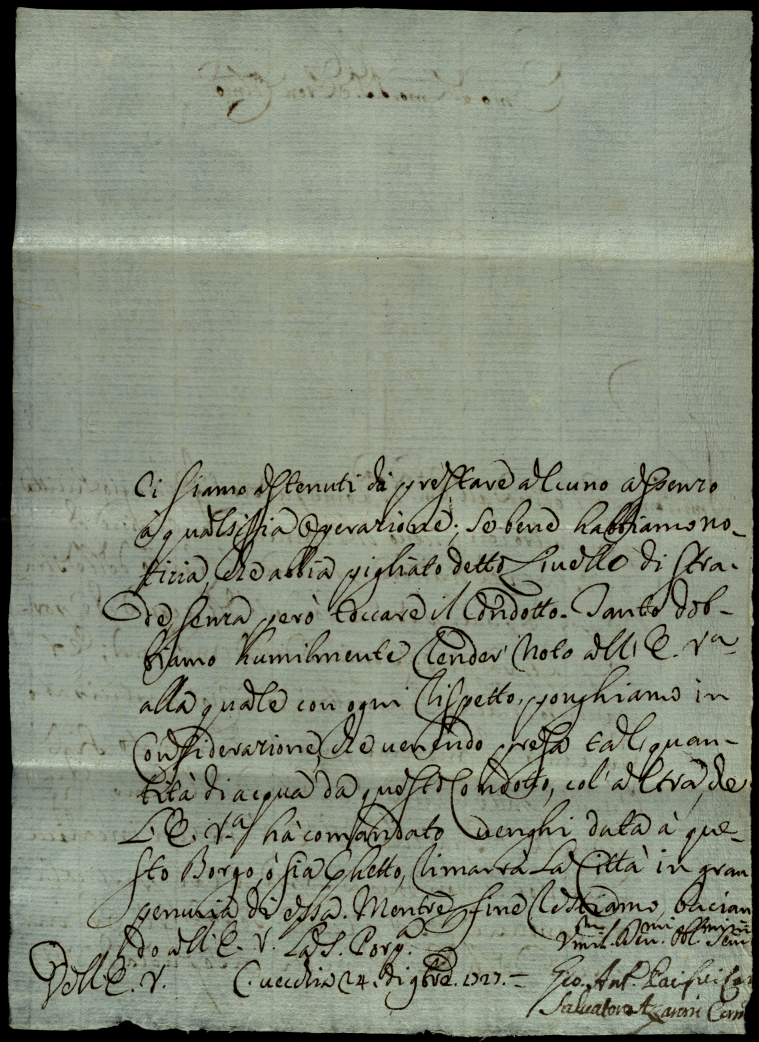 Ci siamo astenuti di prestare alcuno assenzo
à qualsisia operazione; se bene habbiamo no-
tizia, che abbia pigliato detto Livello di stra-
de senza però toccare il Condotto. Tanto dob-
biamo humilmente render noto all' E. Vra
alla quale con ogni rispetto, ponghiamo in
Considerazione, che venendo presa tal quan-
tità di acqua da questo Condotto, col' altra, che
L' E. Vra hà comandato venghi data à que-
sto Borgo, ò sia Ghetto, rimarrà La Città in gran
penuria di essa. Mentre fine restiamo bacian
do all' E. V. La S. Porpa.
Dell' E. V. C. vecchia 24. di 9bre. 1727. =
Gio. Ant.
Salvatore